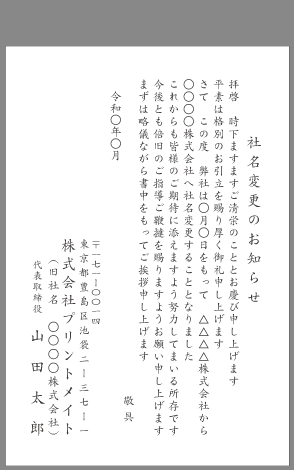 社名変更のお知らせ
拝啓　時下ますますご清栄のこととお慶び申し上げます
平素は格別のお引立を賜り厚く御礼申し上げます
さて　この度　弊社は〇月〇日をもって　△△△△株式会社から
〇〇〇〇株式会社へ社名変更することとなりました
これからも皆様のご期待に添えますよう努力してまいる所存です
今後とも倍旧のご指導ご鞭撻を賜りますようお願い申し上げます
まずは略儀ながら書中をもってご挨拶申し上げます
敬具
令和〇年〇月
〒一七一-〇〇一四
東京都豊島区池袋二-三七-一
株式会社プリントメイト
（旧社名　〇〇〇〇株式会社）
代表取締役　山田太郎